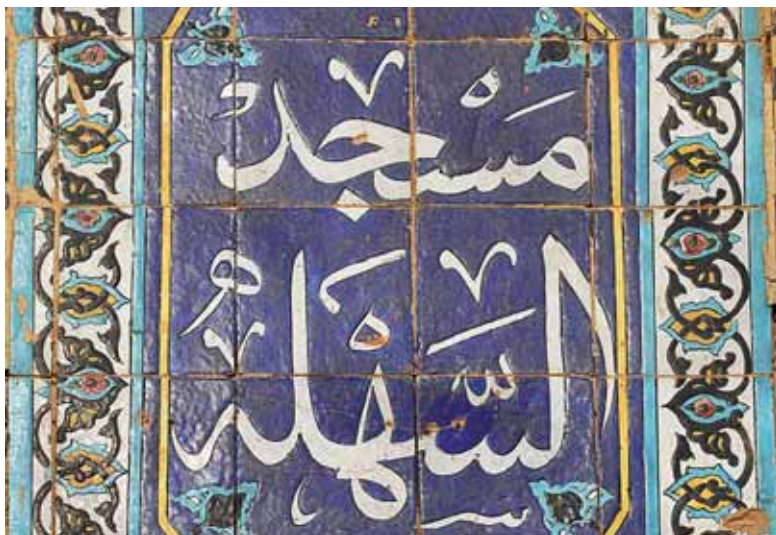 مَسْجِدُ
السَّهْلَه